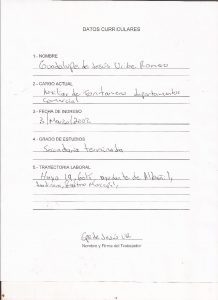 DATOS CURRICULARES
1.- NOMBRE
Guadalupe de Jesús Uribe Romeo
2.- CARGO ACTUAL
Auxiliar de departamento
Comercial
3.- FECHA DE INGRESO
8/Marzo/2002
4.- GRADO DE ESTUDIOS
Secundaria terminada
5.- TRAYECTORIA LABORAL
ayudante de Albañil,
Nombre y Firma del Trabajador